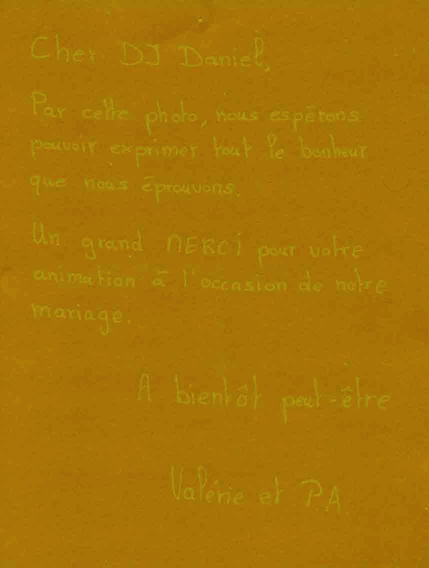 Cher DJ Daniel,
Par cette photo, nous espérons
pouvoir exprimer tout le bonheur
que nous éprouvons.
Un grand MERCI pour votre
animation à l'occasion de notre
mariage.
A bientôt peut-être
Valérie et P.A.